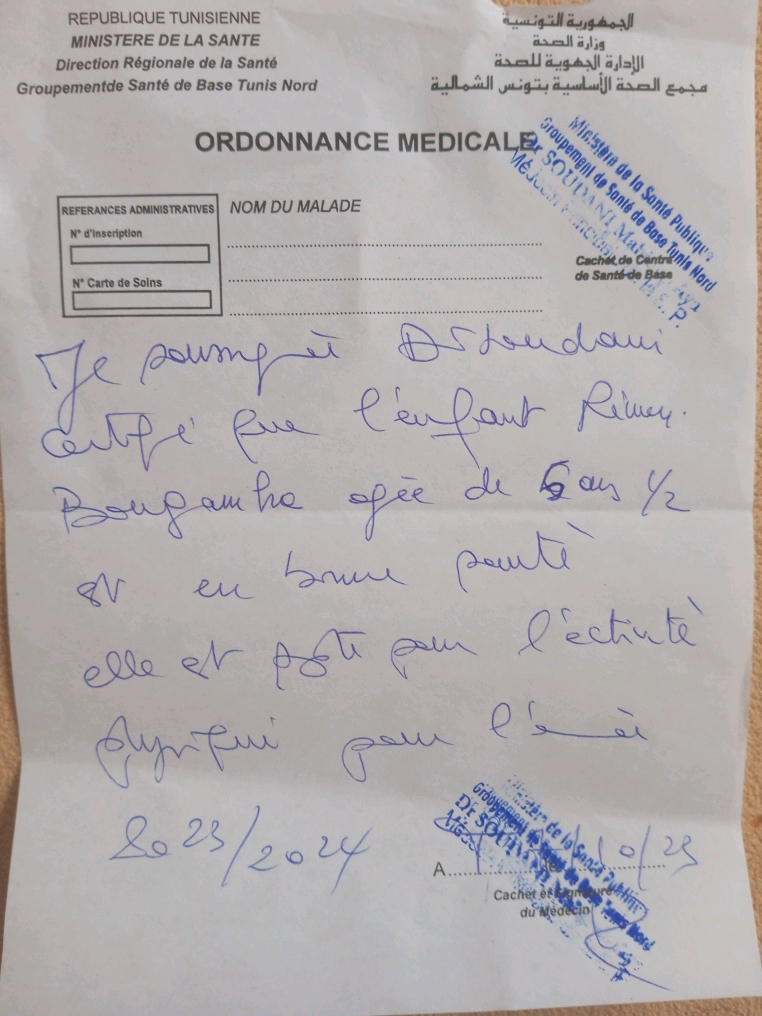 REPUBLIQUE TUNISIENNE
MINISTERE DE LA SANTE
Direction Régionale de la Santé
Groupementde Santé de Base Tunis Nord
الجمهورية التونسية
وزارة الصحة
الإدارة الجهوية للصحة
مجمع الصحة الأساسية بتونس الشمالية
ORDONNANCE MEDICALE
Ministère de la Santé Publique
Groupement de Santé de Base Tunis Nord
Dr SOUDANI
REFERANCES ADMINISTRATIVES
N° d'inscription
N° Carte de Soins
NOM DU MALADE
Cachet de Centre
de Santé de Base
Je soussigné Dr Soudani
certifie que l'enfant
agée de ans 1/2
est en bonne santé
elle est apte pour l'activité
physique pour l'année
2023/2024
A
10/23
Cachet et Signature
du Médecin
Ministère de la Santé Publique
Groupement de Santé de Base Tunis Nord
Dr SOUDANI